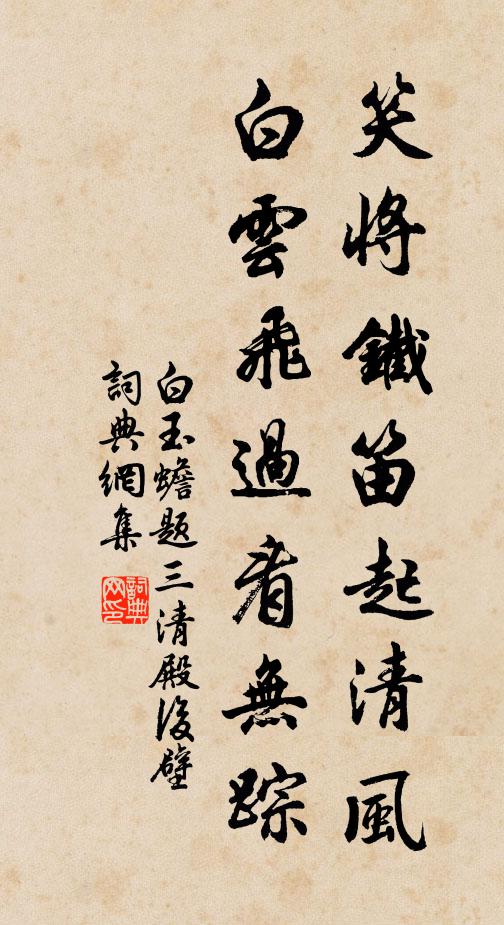 笑將鐵笛起清風
白雲飛過看無蹤
白玉蟾題三清殿後壁
詞典網集
詞典网印